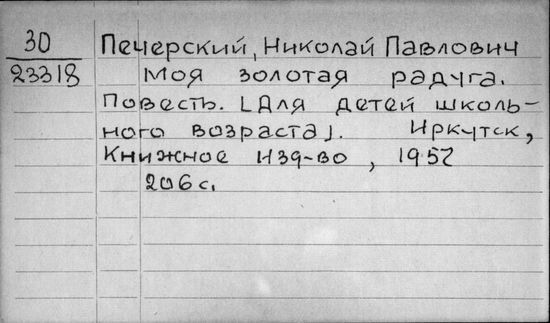 30
23318
Печерский, Николай Павлович
Моя золотая радуга.
Повесть. [Для детей школь-
ного возраста]. Иркутск,
Книжное изд-во, 1957
206 с.